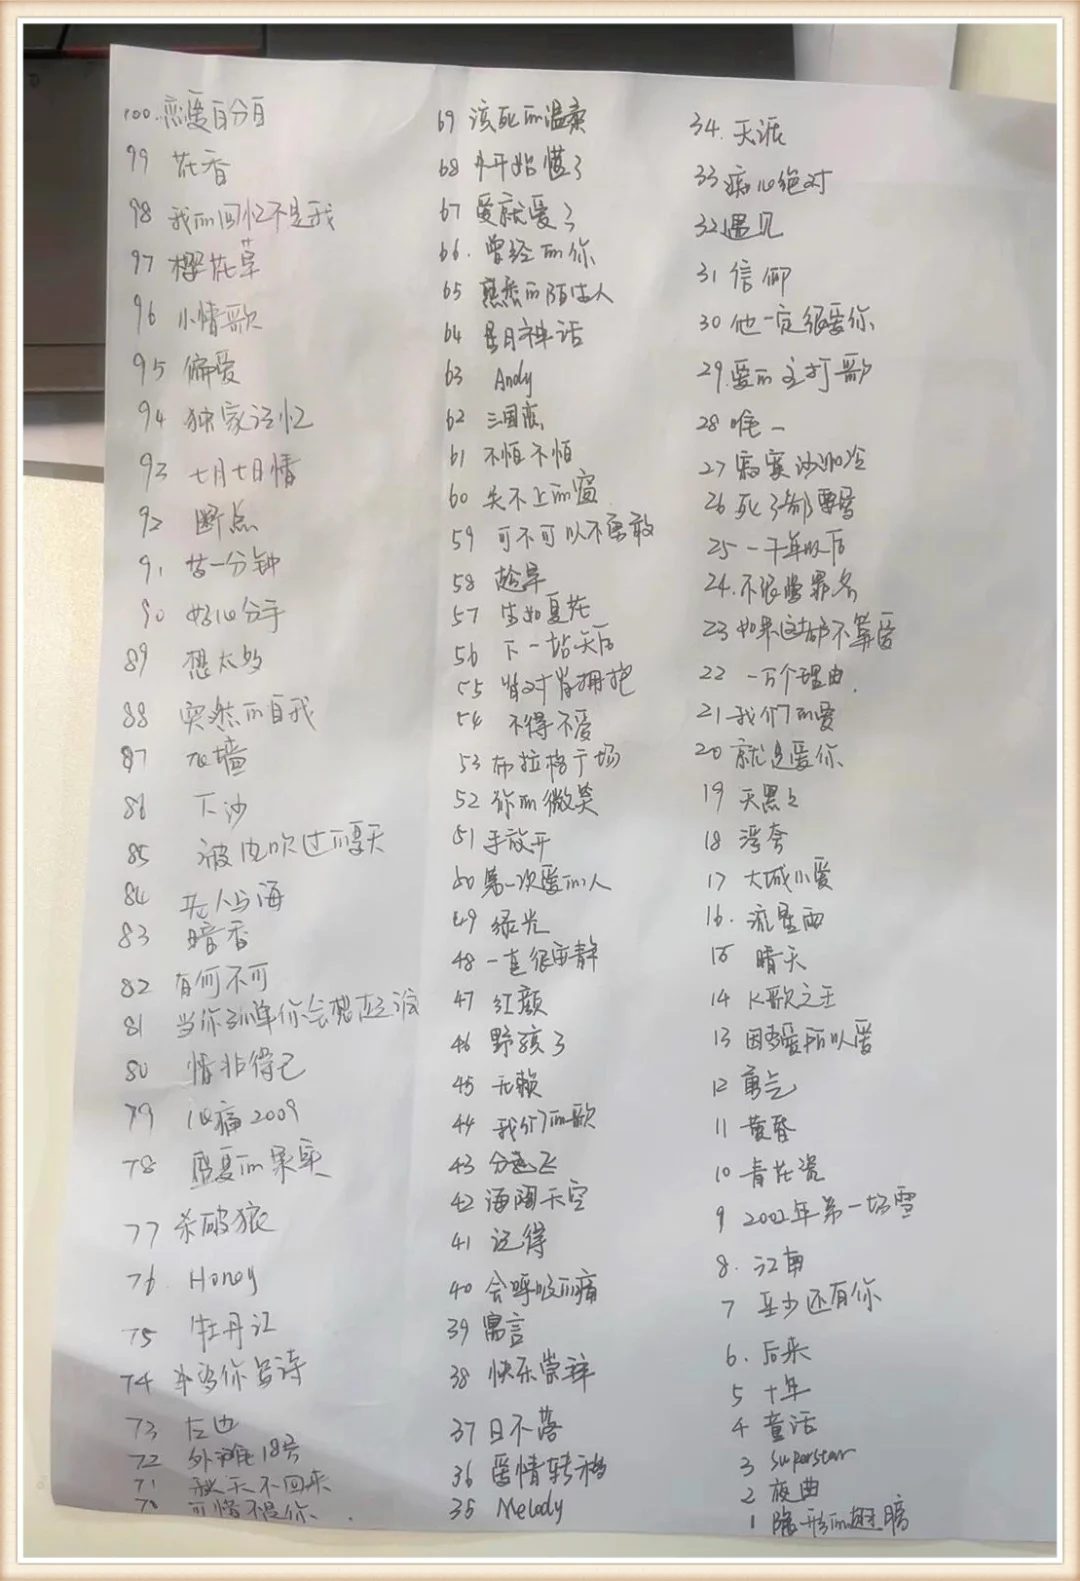 100.恋爱百分百
99 花香
98 我的回忆不是我
97 樱花草
96 小情歌
95 偏爱
94 独家记忆
93 七月七日情
92 断点
91 一分钟
90 好心分手
89 想太多
88 突然的自我
87 心墙
86 下沙
85 被风吹过的夏天
84 无人与海
83 暗香
82 有何不可
81 当你孤单你会想起谁
80 情非得已
79 心痛2009
78 盛夏的果实
77 杀破狼
76. Honey
75 牡丹江
74 当你
73 左边
72 外滩18号
71 秋天不回来
70 可惜不是你.
69 该死的温柔
68 才开始懂了
67 爱就爱了
66. 曾经的你
65 熟悉的陌生人
64 星月神话
63 Andy
62 三国恋
61 不怕不怕
60 关不上的窗
59 可不可以不勇敢
58 趁早
57 生如夏花
56 下一站天后
55 背对背拥抱
54 不得不爱
53 布拉格广场
52 你的微笑
51 手放开
50 第一次爱的人
49 绿光
48 一直很安静
47 红颜
46 野孩子
45 无赖
44 我们的歌
43 分飞
42 海阔天空
41 记得
40 会呼吸的痛
39 寓言
38 快乐崇拜
37 日不落
36 爱情转移
35 Melody
34. 天涯
33 痴心绝对
32 遇见
31 信仰
30 他一定很爱你
29.爱的主打歌
28 唯一
27 寂寞沙洲冷
26 死了都要爱
25 一千年以后
24.不谓罪名
23 如果这都不算爱
22 一万个理由.
21 我们的爱
20 就是爱你
19 天黑
18 浮夸
17 大城小爱
16. 流星雨
15 晴天
14 K歌之王
13 因为爱所以爱
12 勇气
11 黄昏
10 青花瓷
9 2002年第一场雪
8. 江南
7 至少还有你
6. 后来
5 十年
4 童话
3 superstar
2 夜曲
1 隐形的翅膀